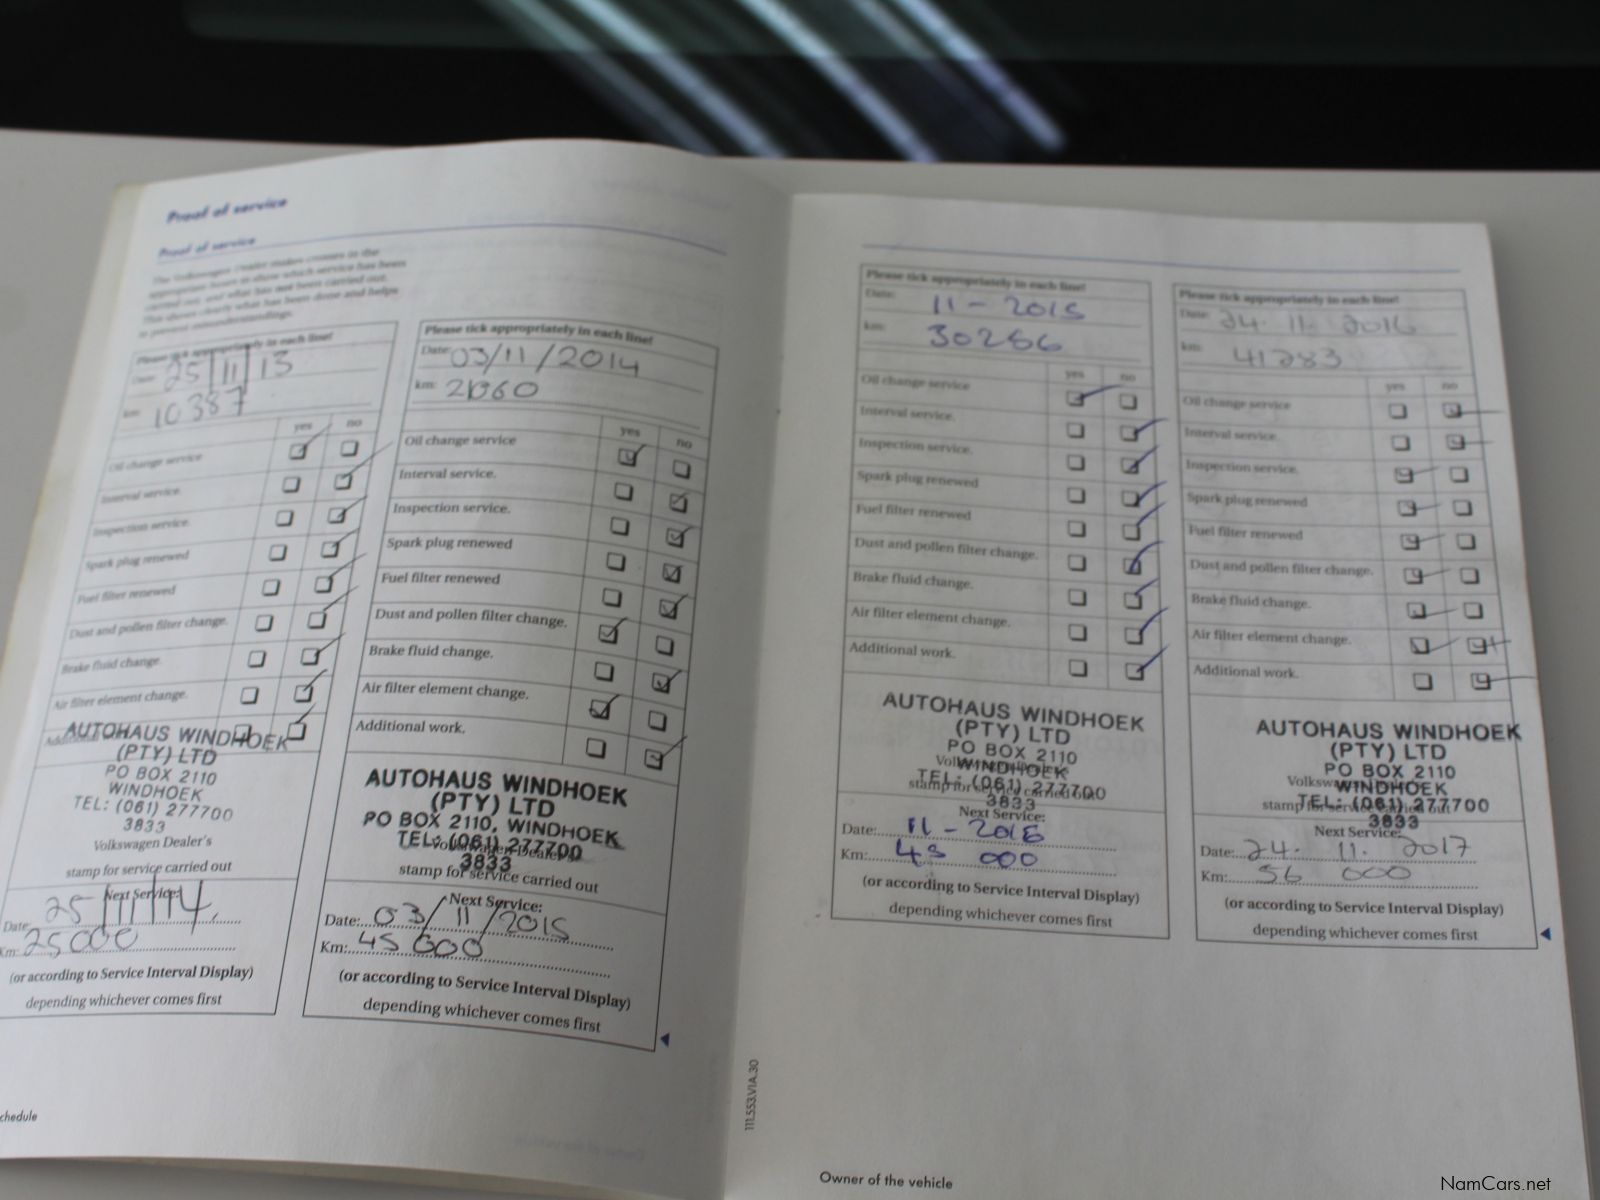 Proof of service
Proof of service
The Volkswagen Dealer makes crosses in the
appropriate boxes to show which service has been
carried out, and what has not been carried out.
This shows clearly what has been done and helps
to prevent misunderstandings.
Please tick appropriately in each line!
Date: 25/11/13
km: 10387
yes no
Oil change service
Interval service.
Inspection service.
Spark plug renewed
Fuel filter renewed
Dust and pollen filter change.
Brake fluid change.
Air filter element change.
Additional
AUTOHAUS WINDHOEK
(PTY) LTD
PO BOX 2110
WINDHOEK
TEL: (061) 277700
3833
Volkswagen Dealer's
stamp for service carried out
Next Service:
Date: 25/11/14
Km: 25000
(or according to Service Interval Display)
depending whichever comes first
Please tick appropriately in each line!
Date: 03/11/2014
km:
yes no
Oil change service
Interval service.
Inspection service.
Spark plug renewed
Fuel filter renewed
Dust and pollen filter change.
Brake fluid change.
Air filter element change.
Additional work.
AUTOHAUS WINDHOEK
(PTY) LTD
PO BOX 2110, WINDHOEK
TEL: (061) 277700
Volkswagen Dealer's
3833
stamp for service carried out
Next Service:
Date: 03/11/2015
Km: 45 000
(or according to Service Interval Display)
depending whichever comes first
chedule
111.553.V1A.30
Please tick appropriately in each line!
Date: 11-2015
km: 30286
yes no
Oil change service
Interval service.
Inspection service.
Spark plug renewed
Fuel filter renewed
Dust and pollen filter change.
Brake fluid change.
Air filter element change.
Additional work.
AUTOHAUS WINDHOEK
(PTY) LTD
PO BOX 2110
Volkswagen Dealer's
WINDHOEK
TEL: (061) 277700
stamp for service carried out
3833
Next Service:
Date: 11-2016
Km: 45 000
(or according to Service Interval Display)
depending whichever comes first
Please tick appropriately in each line!
Date: 24. 11. 2016
km: 41283
yes no
Oil change service
Interval service.
Inspection service.
Spark plug renewed
Fuel filter renewed
Dust and pollen filter change.
Brake fluid change.
Air filter element change.
Additional work.
AUTOHAUS WINDHOEK
(PTY) LTD
PO BOX 2110
Volkswagen Dealer's
WINDHOEK
TEL: (061) 277700
stamp for service carried out
3833
Next Service:
Date: 24. 11. 2017
Km: 56 000
(or according to Service Interval Display)
depending whichever comes first
Owner of the vehicle
NamCars.net